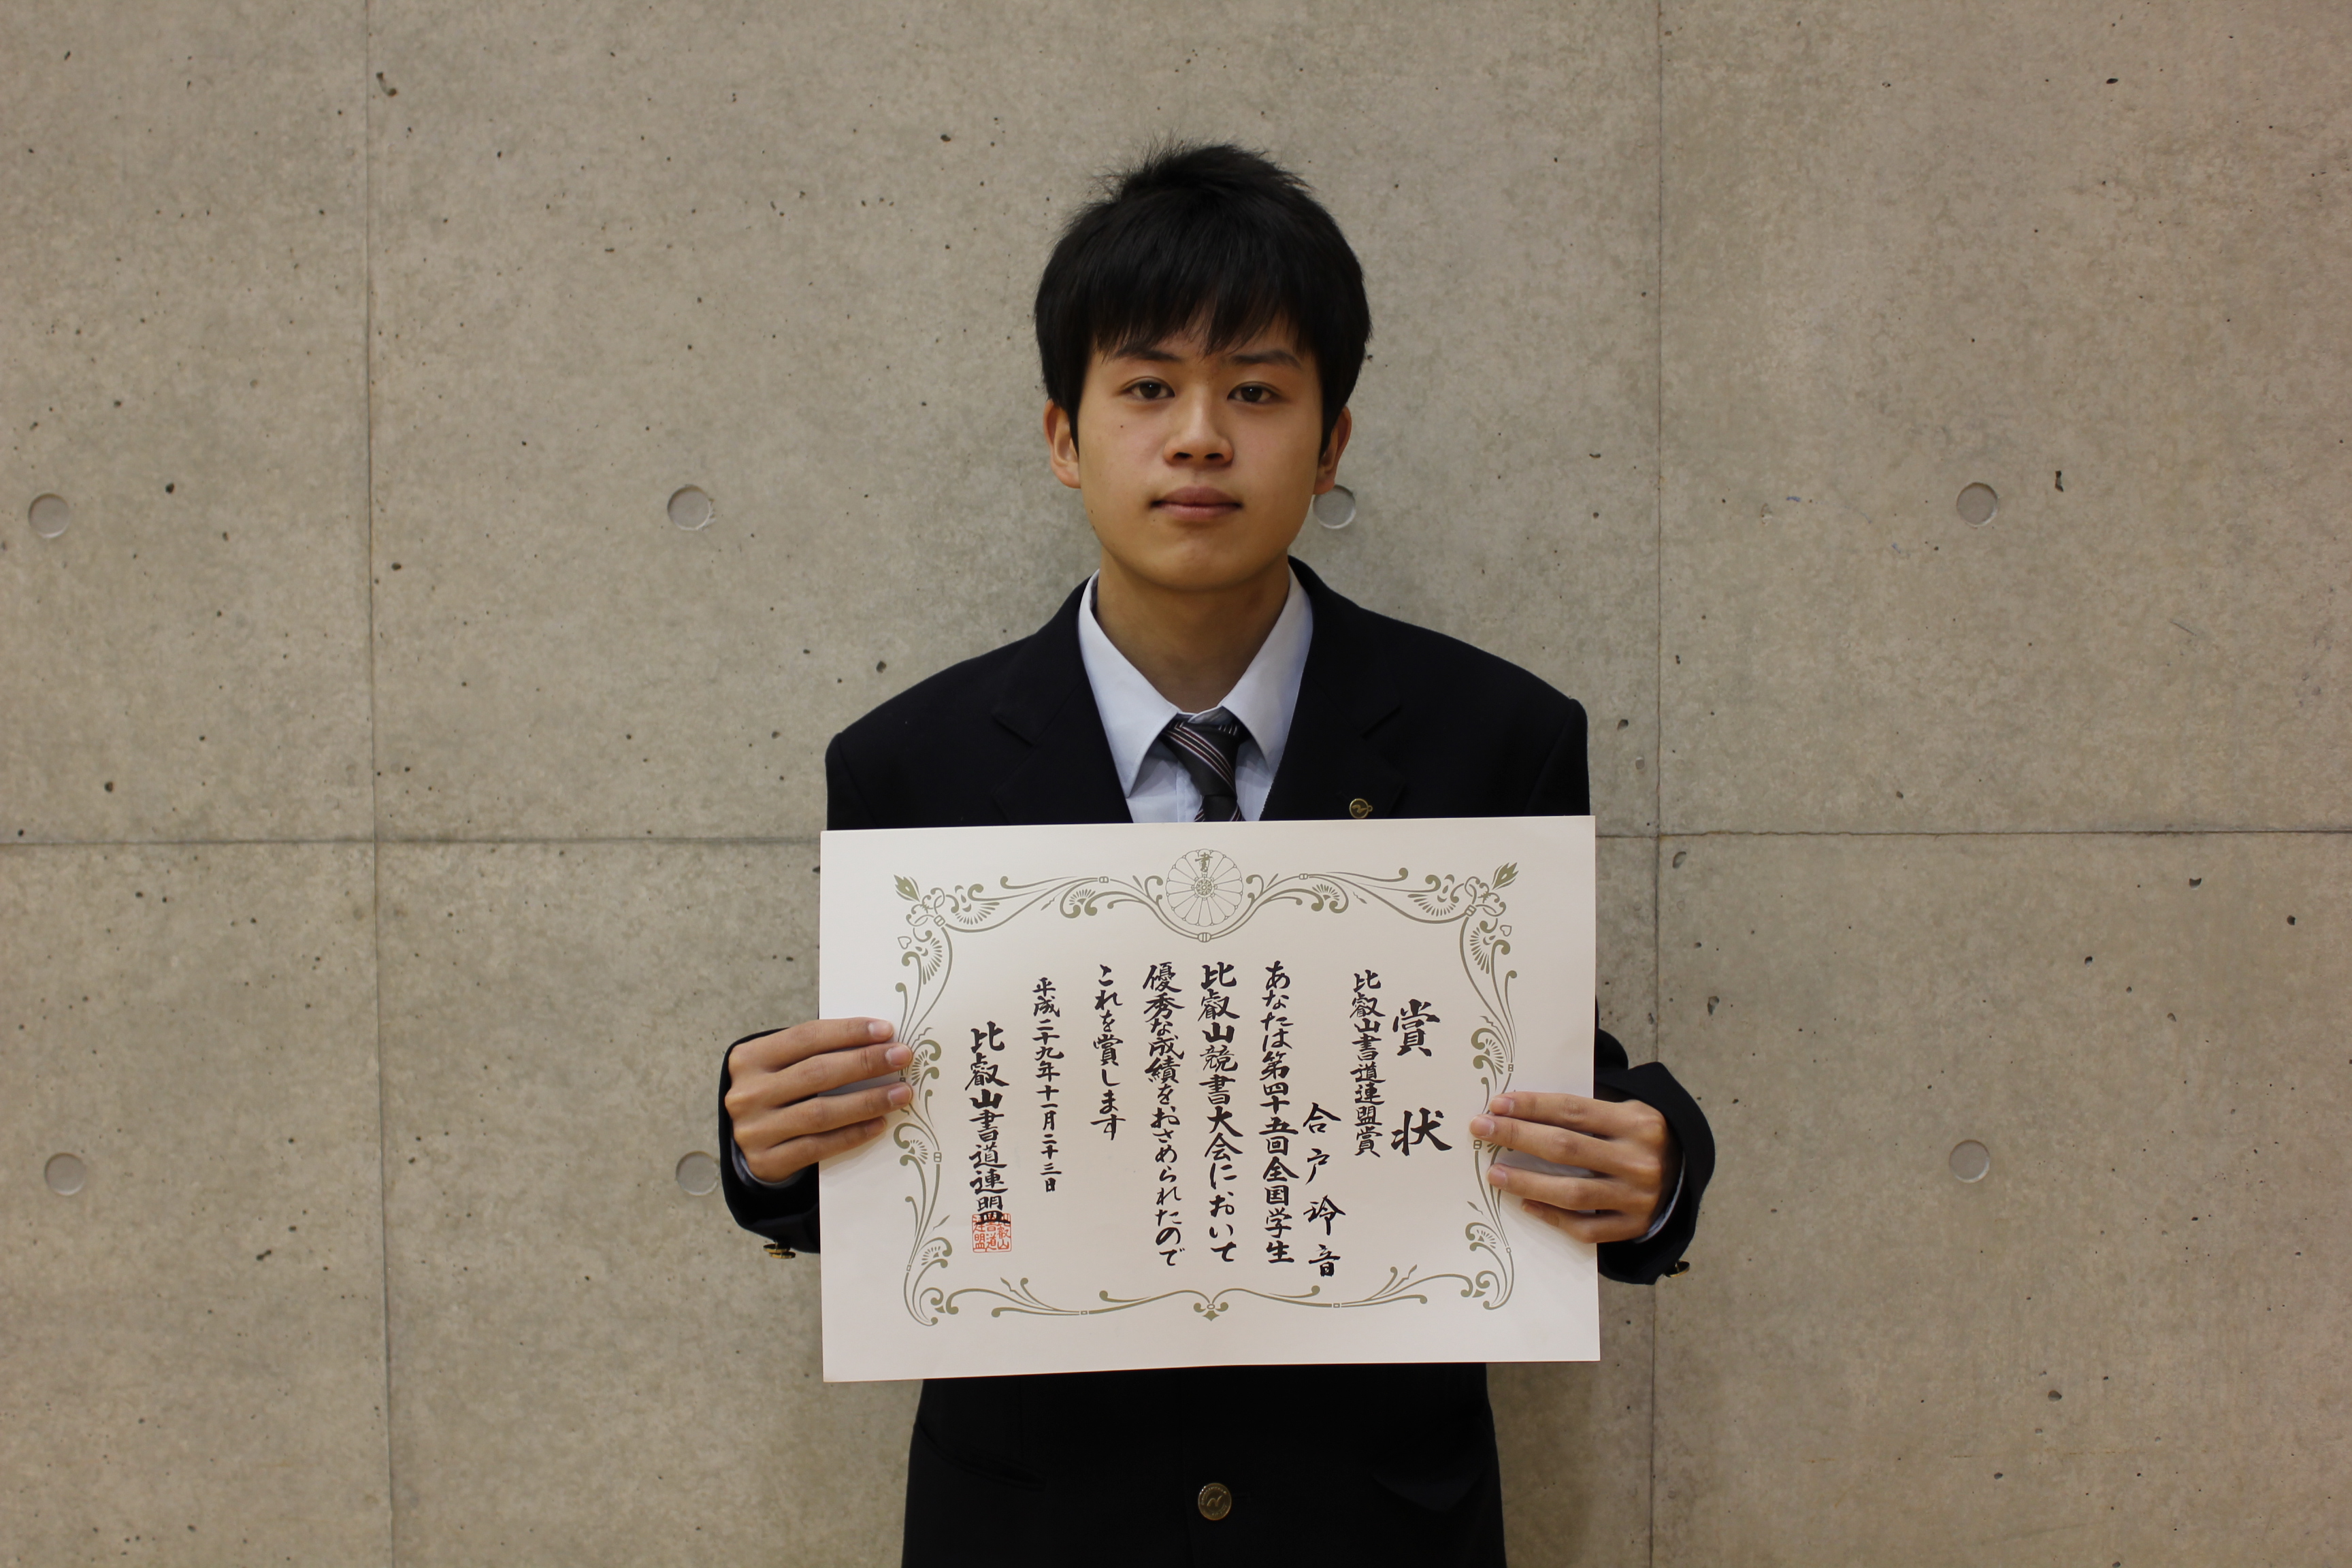 賞状
比叡山書道連盟賞
合戸玲音
あなたは第四十五回全国学生
比叡山競書大会において
優秀な成績をおさめられたので
これを賞します
平成二十九年十一月二十三日
比叡山書道連盟
書